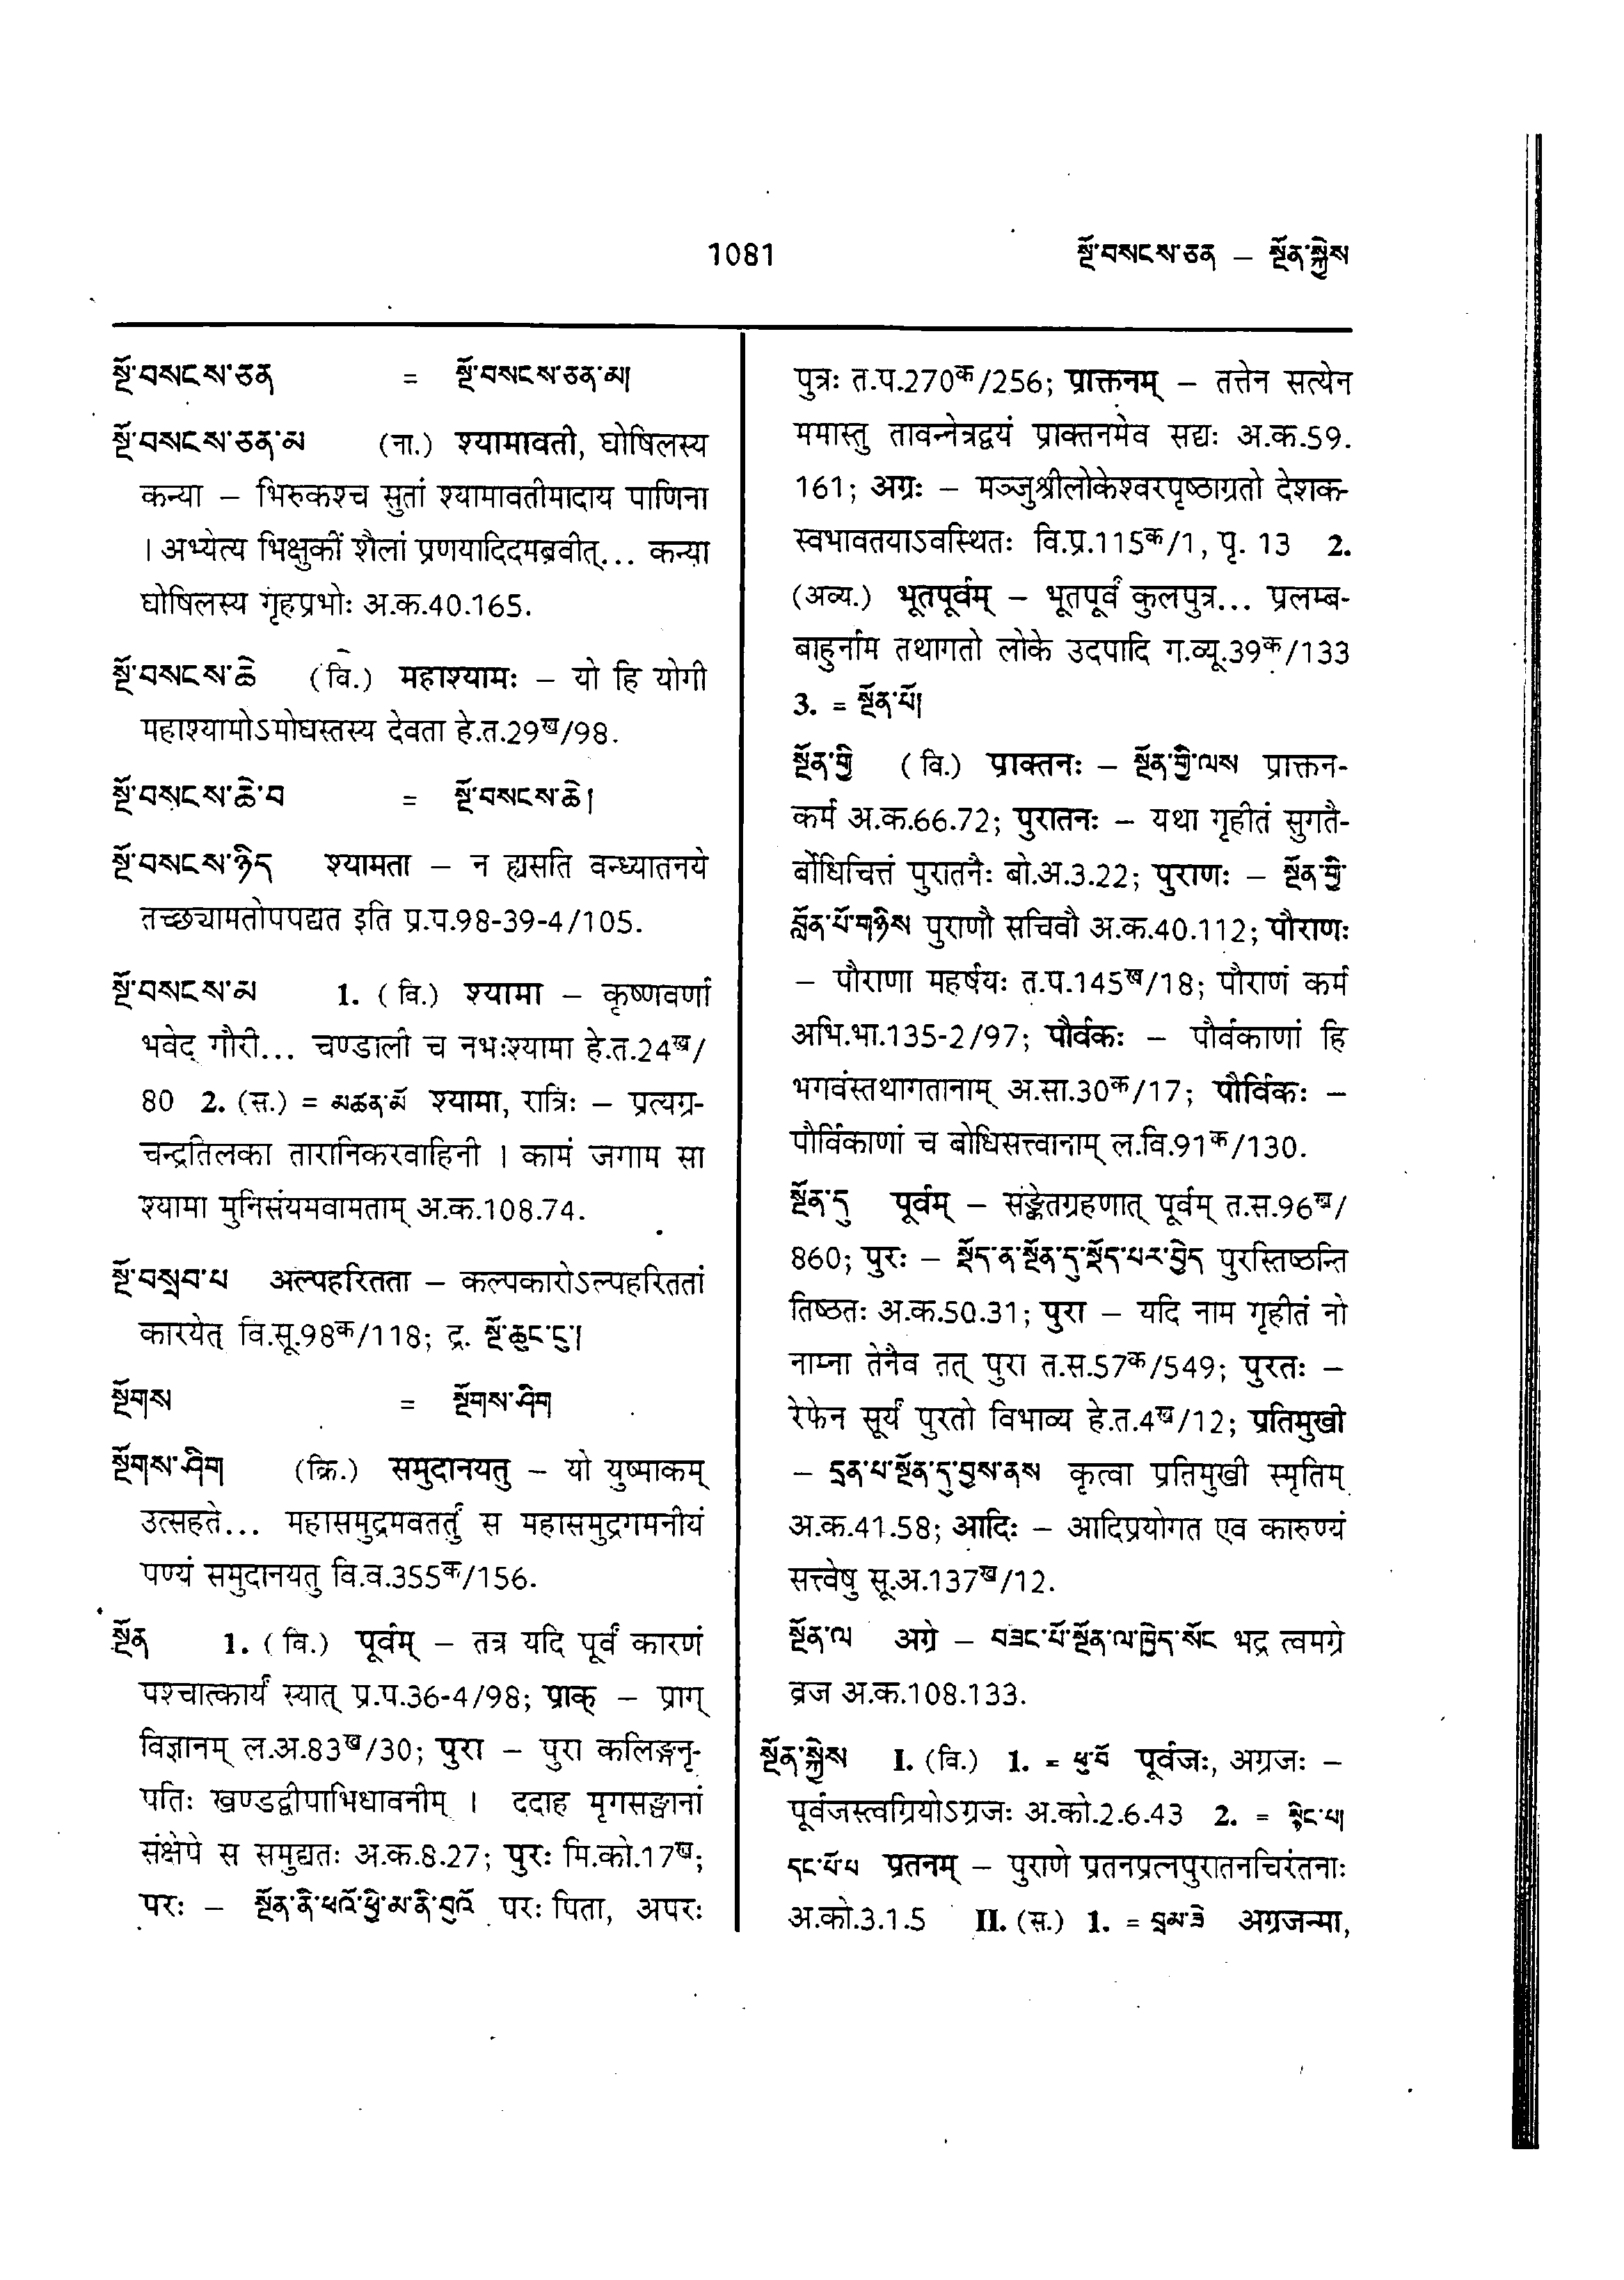 1081
སྔོ་བསངས་ཅན – སྔོན་སྐྱེས
སྔོ་བསངས་ཅན = སྔོ་བསངས་ཅན་མ།
སྔོ་བསངས་ཅན་མ (ना.) श्यामावती, घोषिलस्य
कन्या – भिरुकश्च सुतां श्यामावतीमादाय पाणिना
। अभ्येत्य भिक्षुकीं शैलां प्रणयादिदमब्रवीत्... कन्या
घोषिलस्य गृहप्रभोः अ.क.40.165.
སྔོ་བསངས་ཆེ (वि.) महाश्यामः – यो हि योगी
महाश्यामोऽमोघस्तस्य देवता हे.त.29ख/98.
སྔོ་བསངས་ཆེ་བ = སྔོ་བསངས་ཆེ།
སྔོ་བསངས་ཉིད श्यामता – न ह्यसति वन्ध्यातनये
तच्छ्यामतोपपद्यत इति प्र.प.98-39-4/105.
སྔོ་བསངས་མ 1. (वि.) श्यामा – कृष्णवर्णा
भवेद् गौरी... चण्डाली च नभःश्यामा हे.त.24ख/
80 2. (स.) = མཚན་མོ श्यामा, रात्रिः – प्रत्यग्र-
चन्द्रतिलका तारानिकरवाहिनी । कामं जगाम सा
श्यामा मुनिसंयमवामताम् अ.क.108.74.
སྔོ་བསྲབ་པ अल्पहरितता – कल्पकारोऽल्पहरिततां
कारयेत् वि.सू.98क/118; द्र. སྔོ་ཆུང་ངུ།
སྔོགས = སྔོགས་ཤིག
སྔོགས་ཤིག (क्रि.) समुदानयतु – यो युष्माकम्
उत्सहते... महासमुद्रमवतर्तुं स महासमुद्रगमनीयं
पण्यं समुदानयतु वि.व.355क/156.
སྔོན 1. (वि.) पूर्वम् – तत्र यदि पूर्वं कारणं
पश्चात्कार्यं स्यात् प्र.प.36-4/98; प्राक् – प्राग्
विज्ञानम् ल.अ.83ख/30; पुरा – पुरा कलिङ्गनृ-
पतिः खण्डद्वीपाभिधावनीम् । ददाह मृगसङ्घानां
संक्षेपे स समुद्यतः अ.क.8.27; पुरः मि.को.17ख;
परः – སྔོན་ནི་ཕའོ་ཕྱི་མ་ནི་བུའོ परः पिता, अपरः
पुत्रः त.प.270क/256; प्राक्तनम् – तत्तेन सत्येन
ममास्तु तावन्नेत्रद्वयं प्राक्तनमेव सद्यः अ.क.59.
161; अग्रः – मञ्जुश्रीलोकेश्वरपृष्ठाग्रतो देशक-
स्वभावतयाऽवस्थितः वि.प्र.115क/1, पृ. 13 2.
(अव्य.) भूतपूर्वम् – भूतपूर्वं कुलपुत्र... प्रलम्ब-
बाहुर्नाम तथागतो लोके उदपादि ग.व्यू.39क/133
3. = སྔོན་པོ།
སྔོན་གྱི (वि.) प्राक्तनः – སྔོན་གྱི་ལས प्राक्तन-
कर्म अ.क.66.72; पुरातनः – यथा गृहीतं सुगतै-
र्बोधिचित्तं पुरातनैः बो.अ.3.22; पुराणः – སྔོན་གྱི་
བློན་པོ་གཉིས पुराणौ सचिवौ अ.क.40.112; पौराणः
– पौराणा महर्षयः त.प.145ख/18; पौराणं कर्म
अभि.भा.135-2/97; पौर्वकः – पौर्वकाणां हि
भगवंस्तथागतानाम् अ.सा.30क/17; पौर्विकः –
पौर्विकाणां च बोधिसत्त्वानाम् ल.वि.91क/130.
སྔོན་དུ पूर्वम् – सङ्केतग्रहणात् पूर्वम् त.स.96ख/
860; पुरः – སྡོད་ན་སྔོན་དུ་སྡོད་པར་བྱེད पुरस्तिष्ठन्ति
तिष्ठतः अ.क.50.31; पुरा – यदि नाम गृहीतं नो
नाम्ना तेनैव तत् पुरा त.स.57क/549; पुरतः –
रेफेन सूर्यं पुरतो विभाव्य हे.त.4ख/12; प्रतिमुखी
– དྲན་པ་སྔོན་དུ་བྱས་ནས कृत्वा प्रतिमुखी स्मृतिम्
अ.क.41.58; आदिः – आदिप्रयोगत एव कारुण्यं
सत्त्वेषु सू.अ.137ख/12.
སྔོན་ལ अग्रे – བཟང་པོ་སྔོན་ལ་ཁྲིད་སོང भद्र त्वमग्रे
व्रज अ.क.108.133.
སྔོན་སྐྱེས I. (वि.) 1. = ཕུ་བོ पूर्वजः, अग्रजः –
पूर्वजस्त्वग्रियोऽग्रजः अ.को.2.6.43 2. = རྙིང་པ།
དང་པོ་པ प्रतनम् – पुराणे प्रतनप्रत्नपुरातनचिरंतनाः
अ.को.3.1.5 II. (स.) 1. = བྲམ་ཟེ अग्रजन्मा,